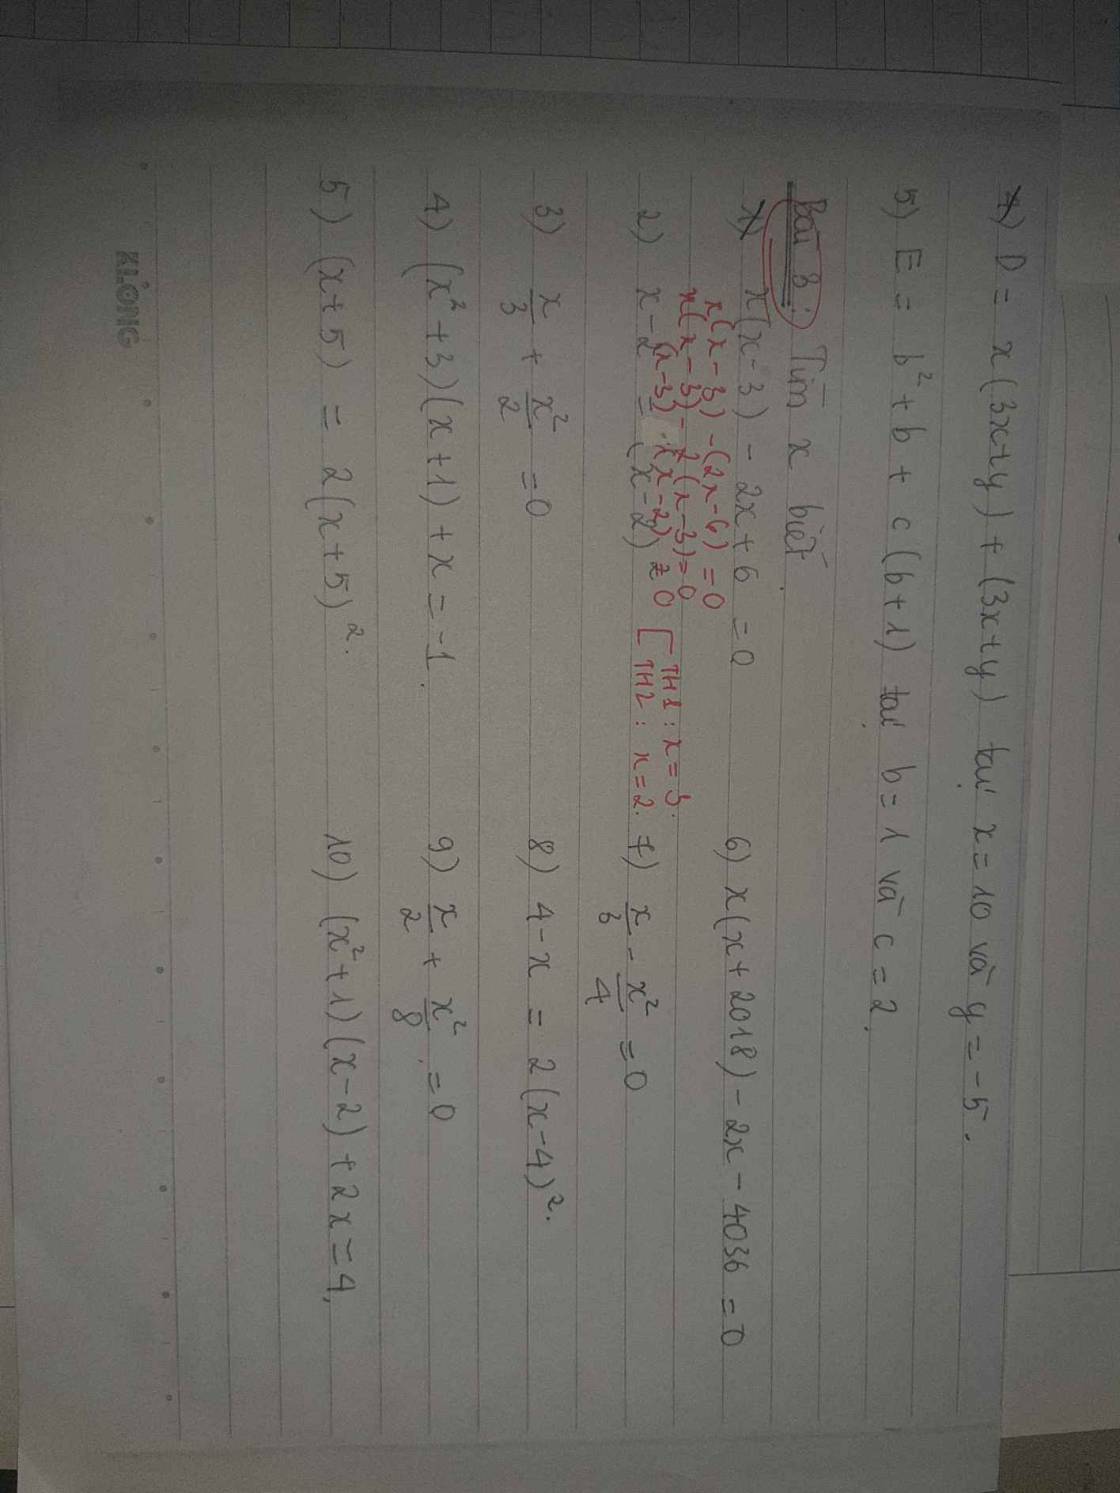 4) D = x(3x+y) + (3x+y) tại x = 10 và y = -5.
5) E = b² + b + c(b+1) tại b = 1 và c = 2.
Bài 3: Tìm x biết
1) x(x-3) - 2x+6 = 0
x(x-3) - (2x-6) = 0
x(x-3) - 2(x-3) = 0
(x-3).(x-2) = 0 [ TH1: x = 3.
TH2: x = 2.
2) x - 2 = (x-2)²
3) x/3 + x²/2 = 0
4) (x²+3)(x+1) + x = -1.
5) (x+5) = 2(x+5)².
6) x(x+2018) - 2x - 4036 = 0
7) x/3 - x²/4 = 0
8) 4 - x = 2(x-4)².
9) x/2 + x²/8 = 0
10) (x²+1)(x-2) + 2x = 4.
KLONG